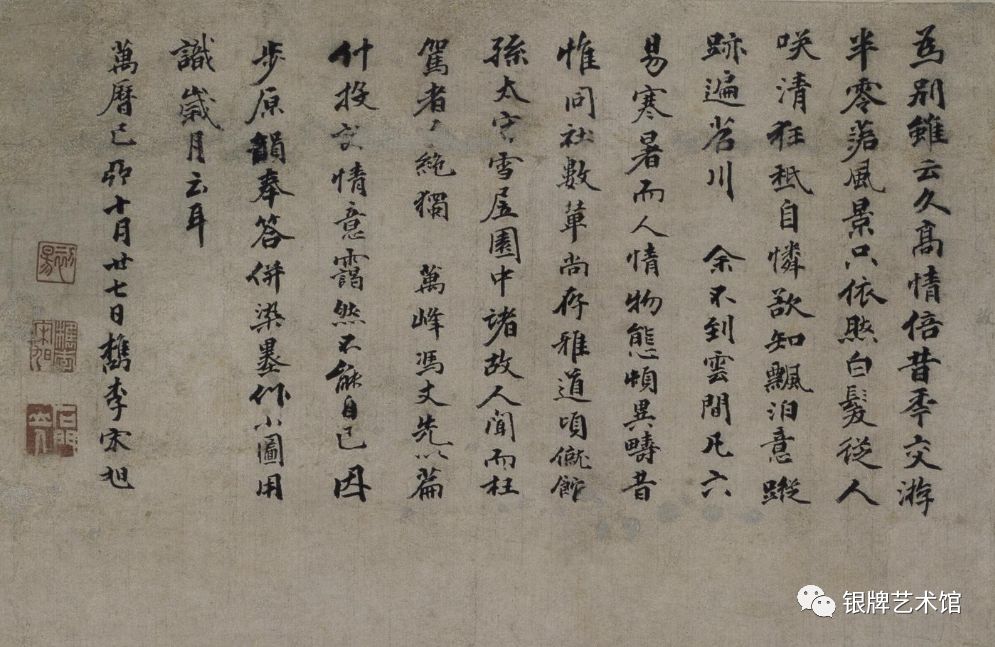 為別雖云久高情倍昔秊交游
半零落風景只依然白髮從人
咲清狂秪自憐欲知飄泊意蹤
跡遍苕川 余不到雲間凡六
易寒暑而人情物態頓異疇昔
惟同社數輩尚存雅道頃僦館
孫太守雪居園中諸故人聞而枉
駕者絶獨 萬峰馮丈先以篇
什投情意靄然不能自已因
步原韻奉答併染墨作小圖用
識歲月云耳
萬曆己卯十月廿七日檇李宋旭
银牌艺术馆